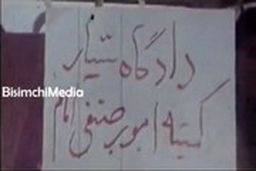 دادگاه سیار
BisimchiMedia
کمیته امور صنفی امام